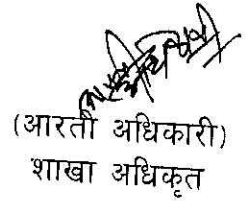 (आरती अधिकारी)
शाखा अधिकृत